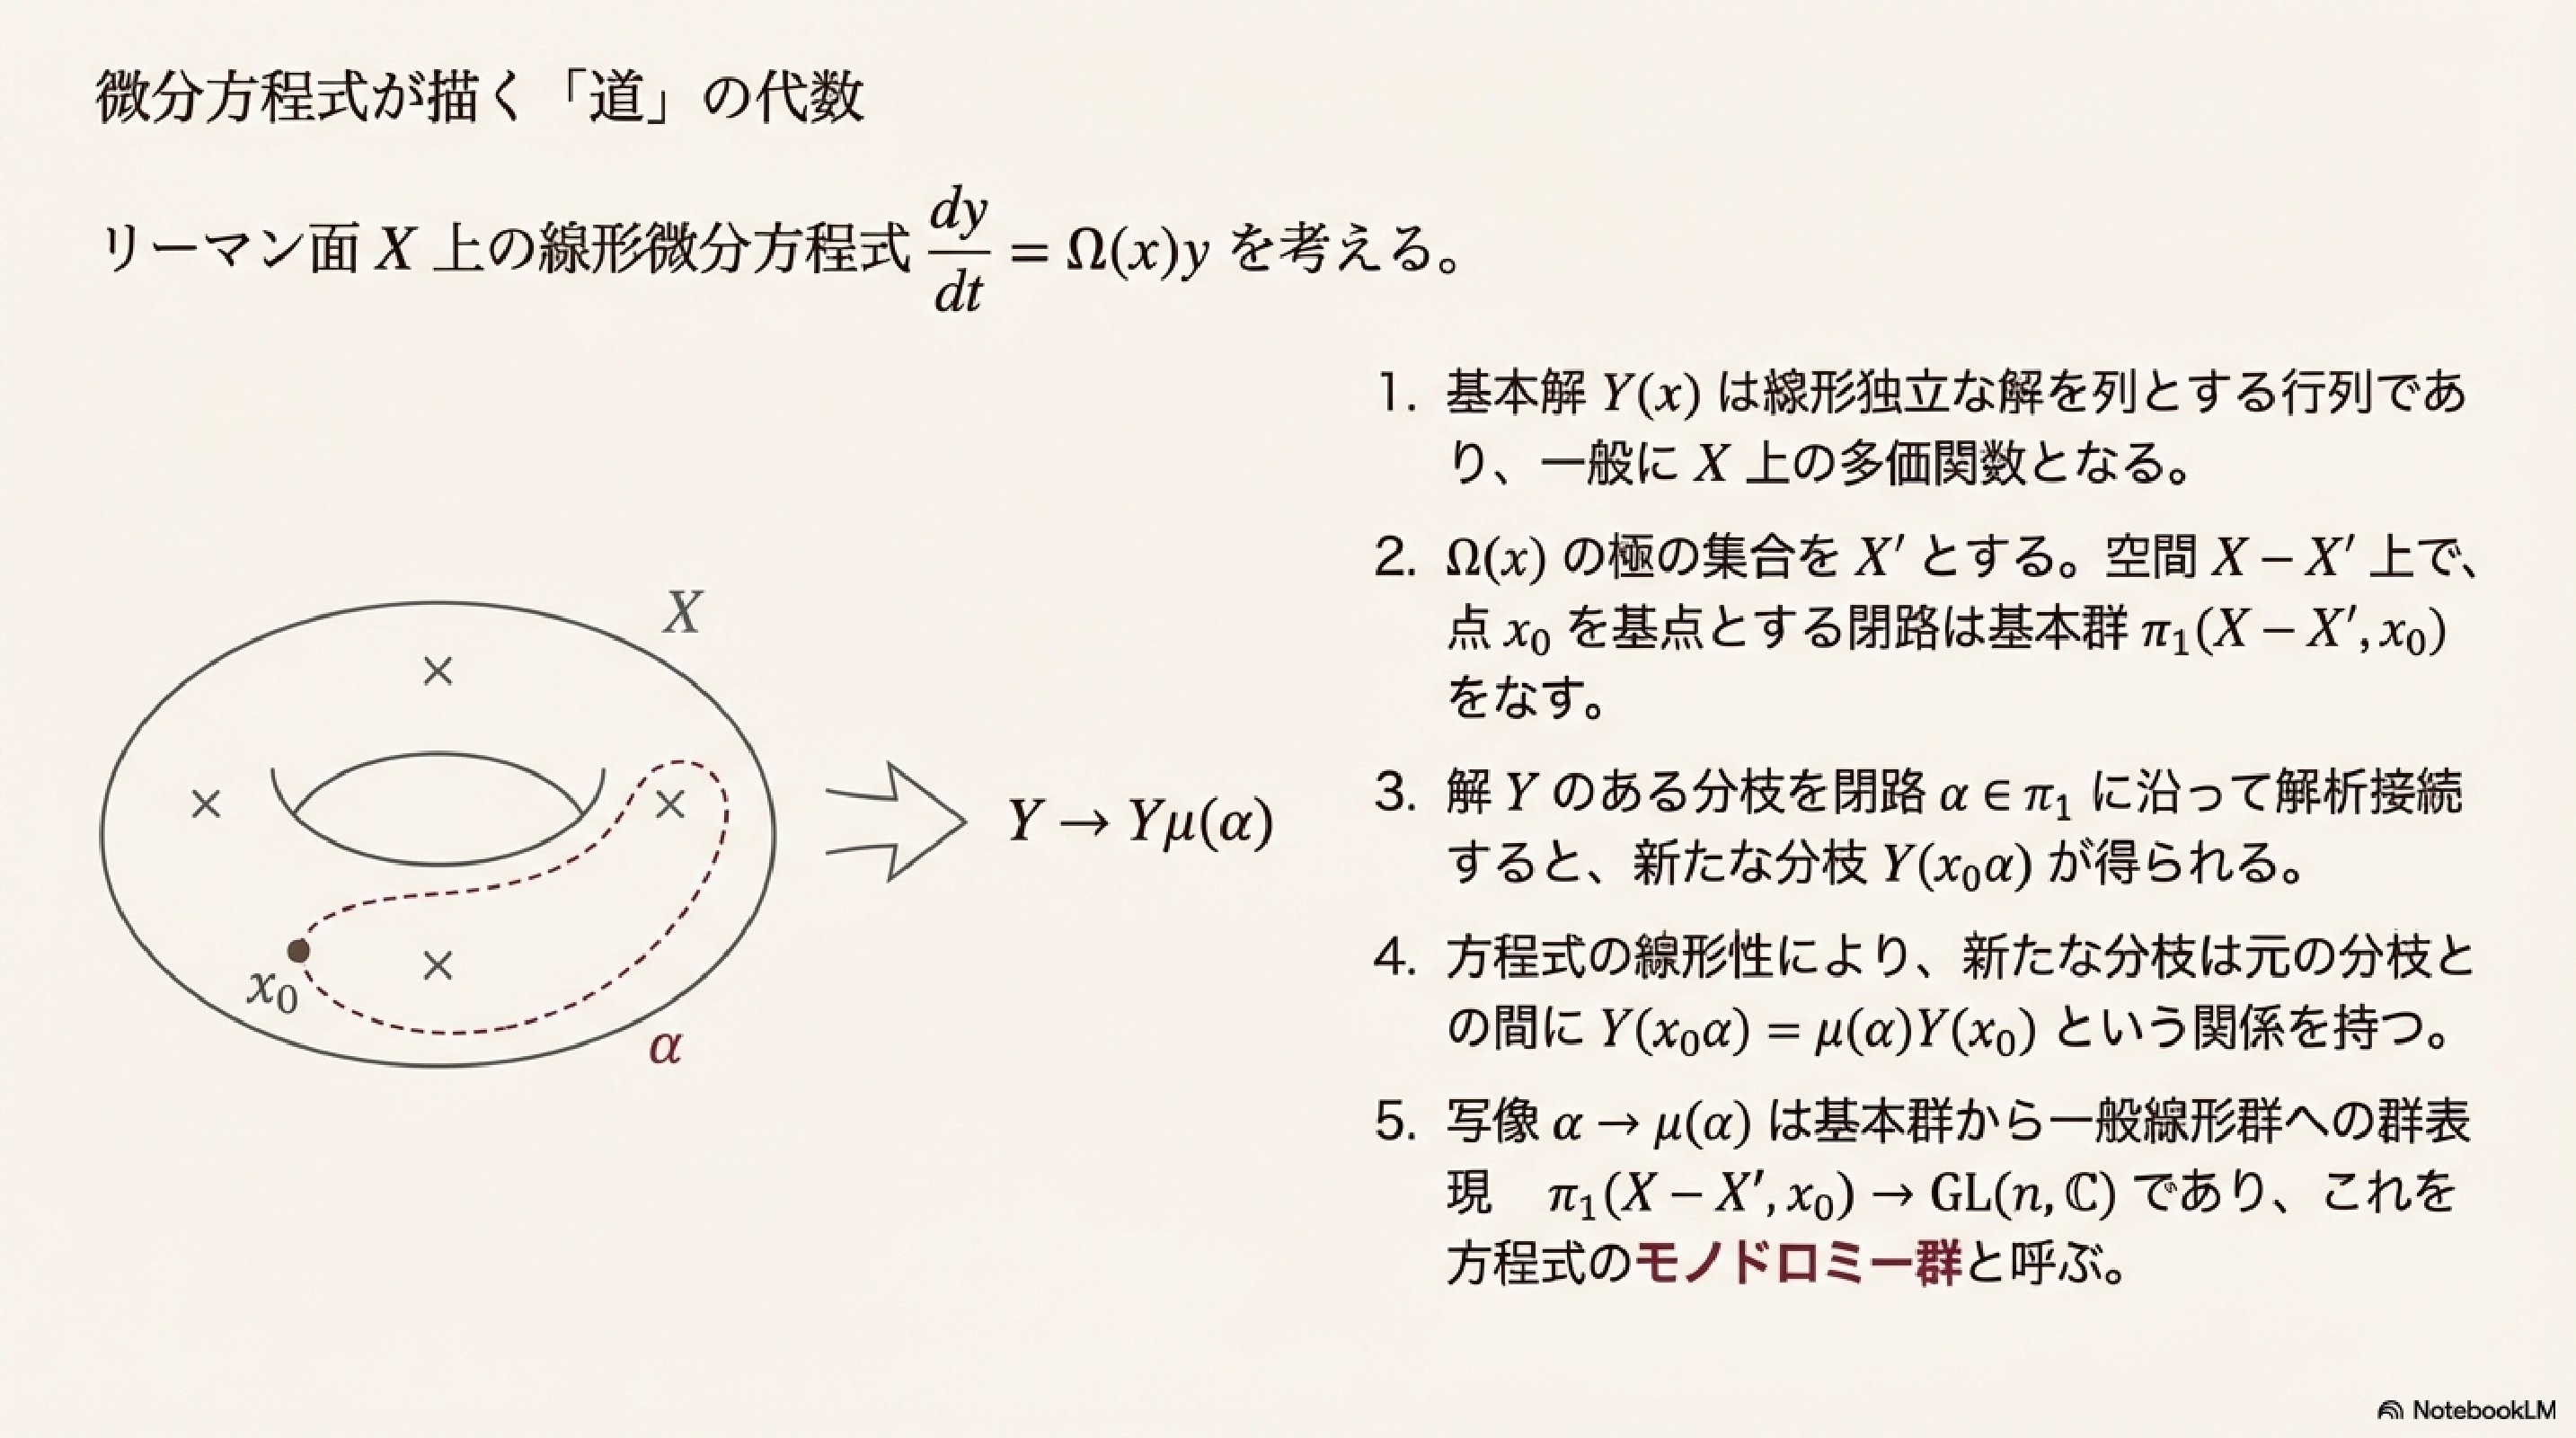 微分方程式が描く「道」の代数
リーマン面 X 上の線形微分方程式 dy/dt = Ω(x)y を考える。
X
x₀
α
Y → Yμ(α)
1. 基本解 Y(x) は線形独立な解を列とする行列であ
り、一般に X 上の多価関数となる。
2. Ω(x) の極の集合を X′ とする。空間 X − X′ 上で、
点 x₀ を基点とする閉路は基本群 π₁(X − X′, x₀)
をなす。
3. 解 Y のある分枝を閉路 α ∈ π₁ に沿って解析接続
すると、新たな分枝 Y(x₀α) が得られる。
4. 方程式の線形性により、新たな分枝は元の分枝と
の間に Y(x₀α) = μ(α)Y(x₀) という関係を持つ。
5. 写像 α → μ(α) は基本群から一般線形群への群表
現 π₁(X − X′, x₀) → GL(n, ℂ) であり、これを
方程式のモノドロミー群と呼ぶ。
NotebookLM